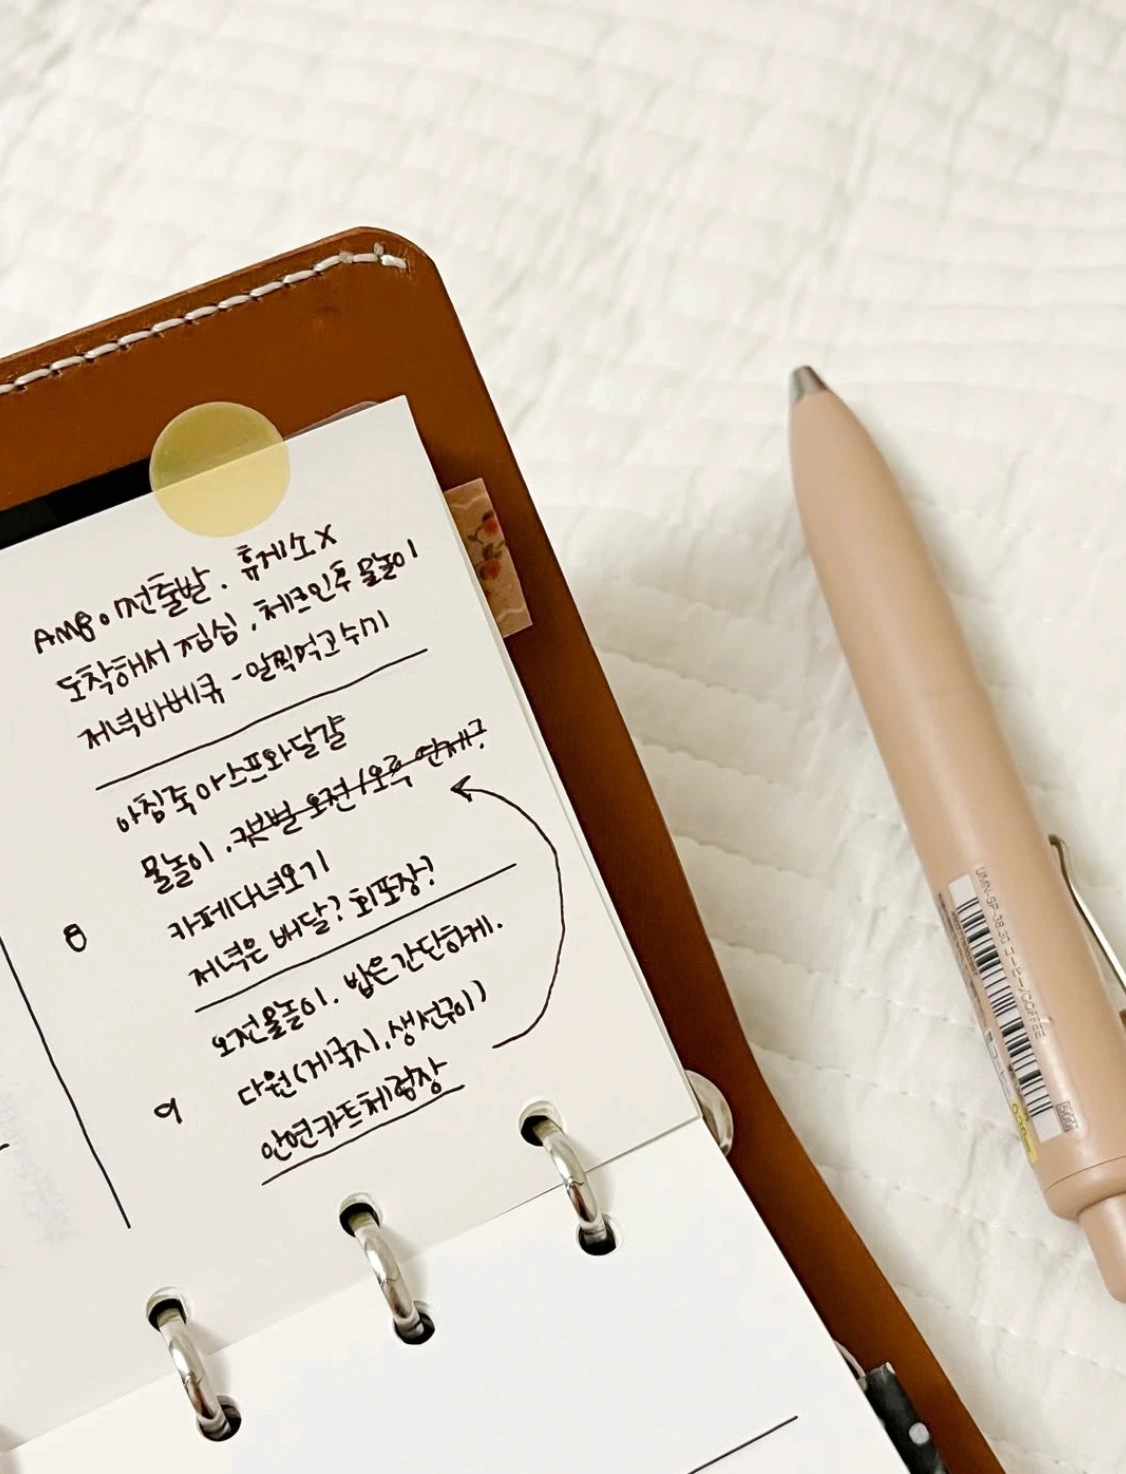 AM8 이전출발. 휴게소X
도착해서 점심, 체크인후 물놀이
저녁바베큐 - 일찍먹고 쉬기
아침죽 아 스프와달걀
물놀이. 오전/오후
카페다녀오기
8
저녁은 배달? 회포장?
오전물놀이. 밥은간단하게.
다원(게국지, 생선구이)
9
안면카트체험장
UMN-SP-38-30 コーヒー/COFFEE